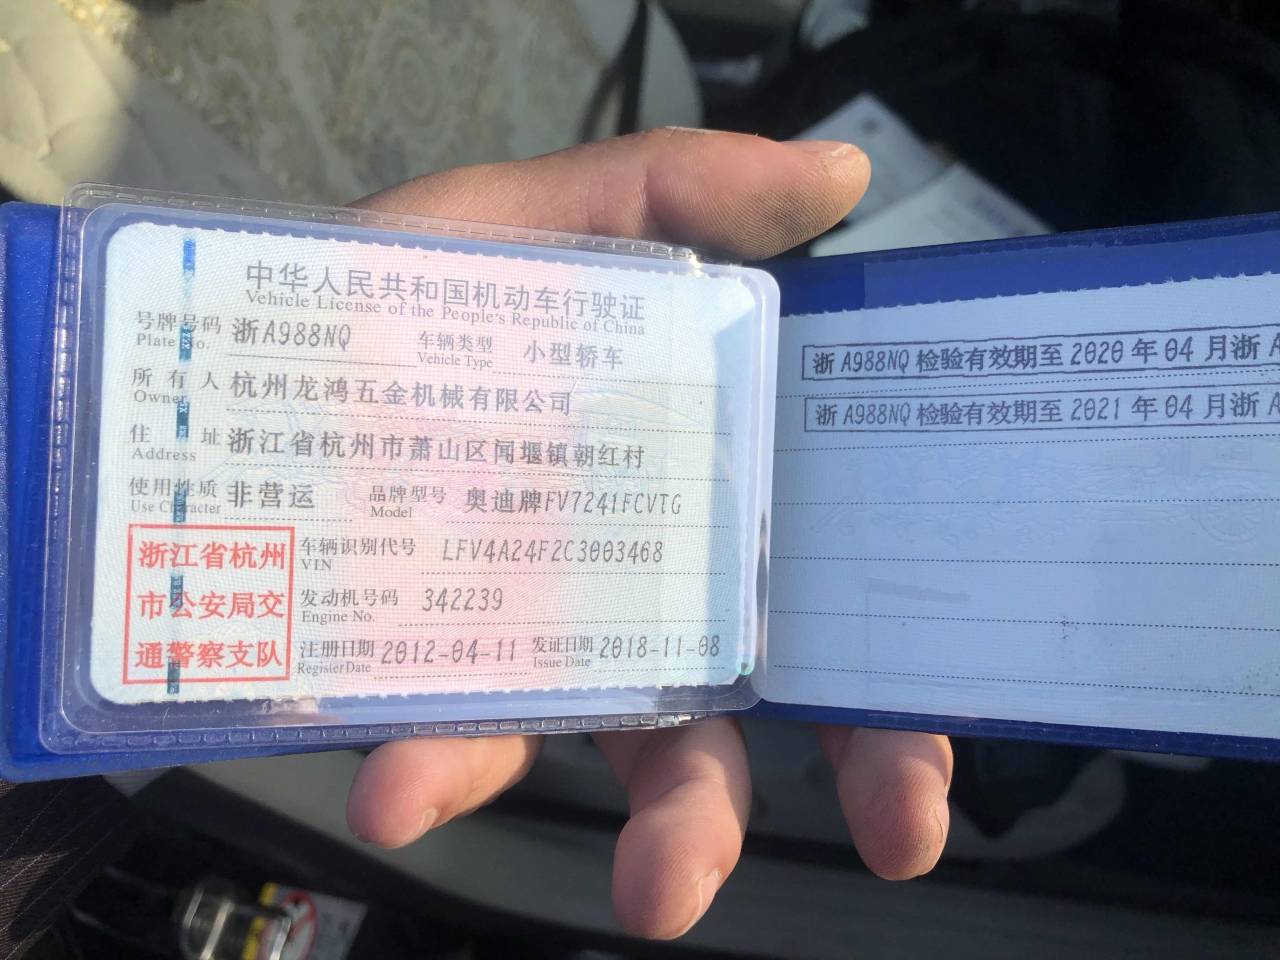 中华人民共和国机动车行驶证
Vehicle License of the People's Republic of China
号牌号码 浙A988NQ 车辆类型 小型轿车
Plate No. Vehicle Type
所有人 杭州龙鸿五金机械有限公司
Owner
住址 浙江省杭州市萧山区闻堰镇朝红村
Address
使用性质 非营运 品牌型号 奥迪牌FV7241FCVTG
Use Character Model
浙江省杭州
市公安局交
通警察支队
车辆识别代号 LFV4A24F2C3003468
VIN
发动机号码 342239
Engine No.
注册日期 2012-04-11 发证日期 2018-11-08
Register Date Issue Date
浙 A988NQ 检验有效期至 2020 年 04 月浙 A
浙 A988NQ 检验有效期至 2021 年 04 月浙 A